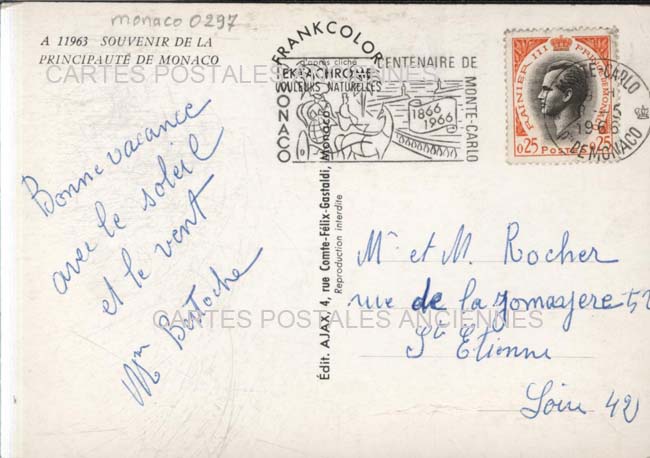 monaco 0297
A 11963 SOUVENIR DE LA
PRINCIPAUTÉ DE MONACO
FRANKCOLOR
d'après cliché
EKTACHROME
COULEURS NATURELLES
MONACO
CENTENAIRE DE
MONTE-CARLO
1866
1966
RAINIER III PRINCE DE MONACO
0,25 POSTES 0,25
MONTE-CARLO
1966
PTE DE MONACO
CARTES POSTALES ANCIENNES
Bonne vacance
avec le soleil
et le vent
Mm
Édit. AJAX, 4, rue Comte-Félix-Gastaldi, Monaco
Reproduction interdite
Mr et M. Rocher
rue de la
St Etienne
Loire 42
CARTES POSTALES ANCIENNES